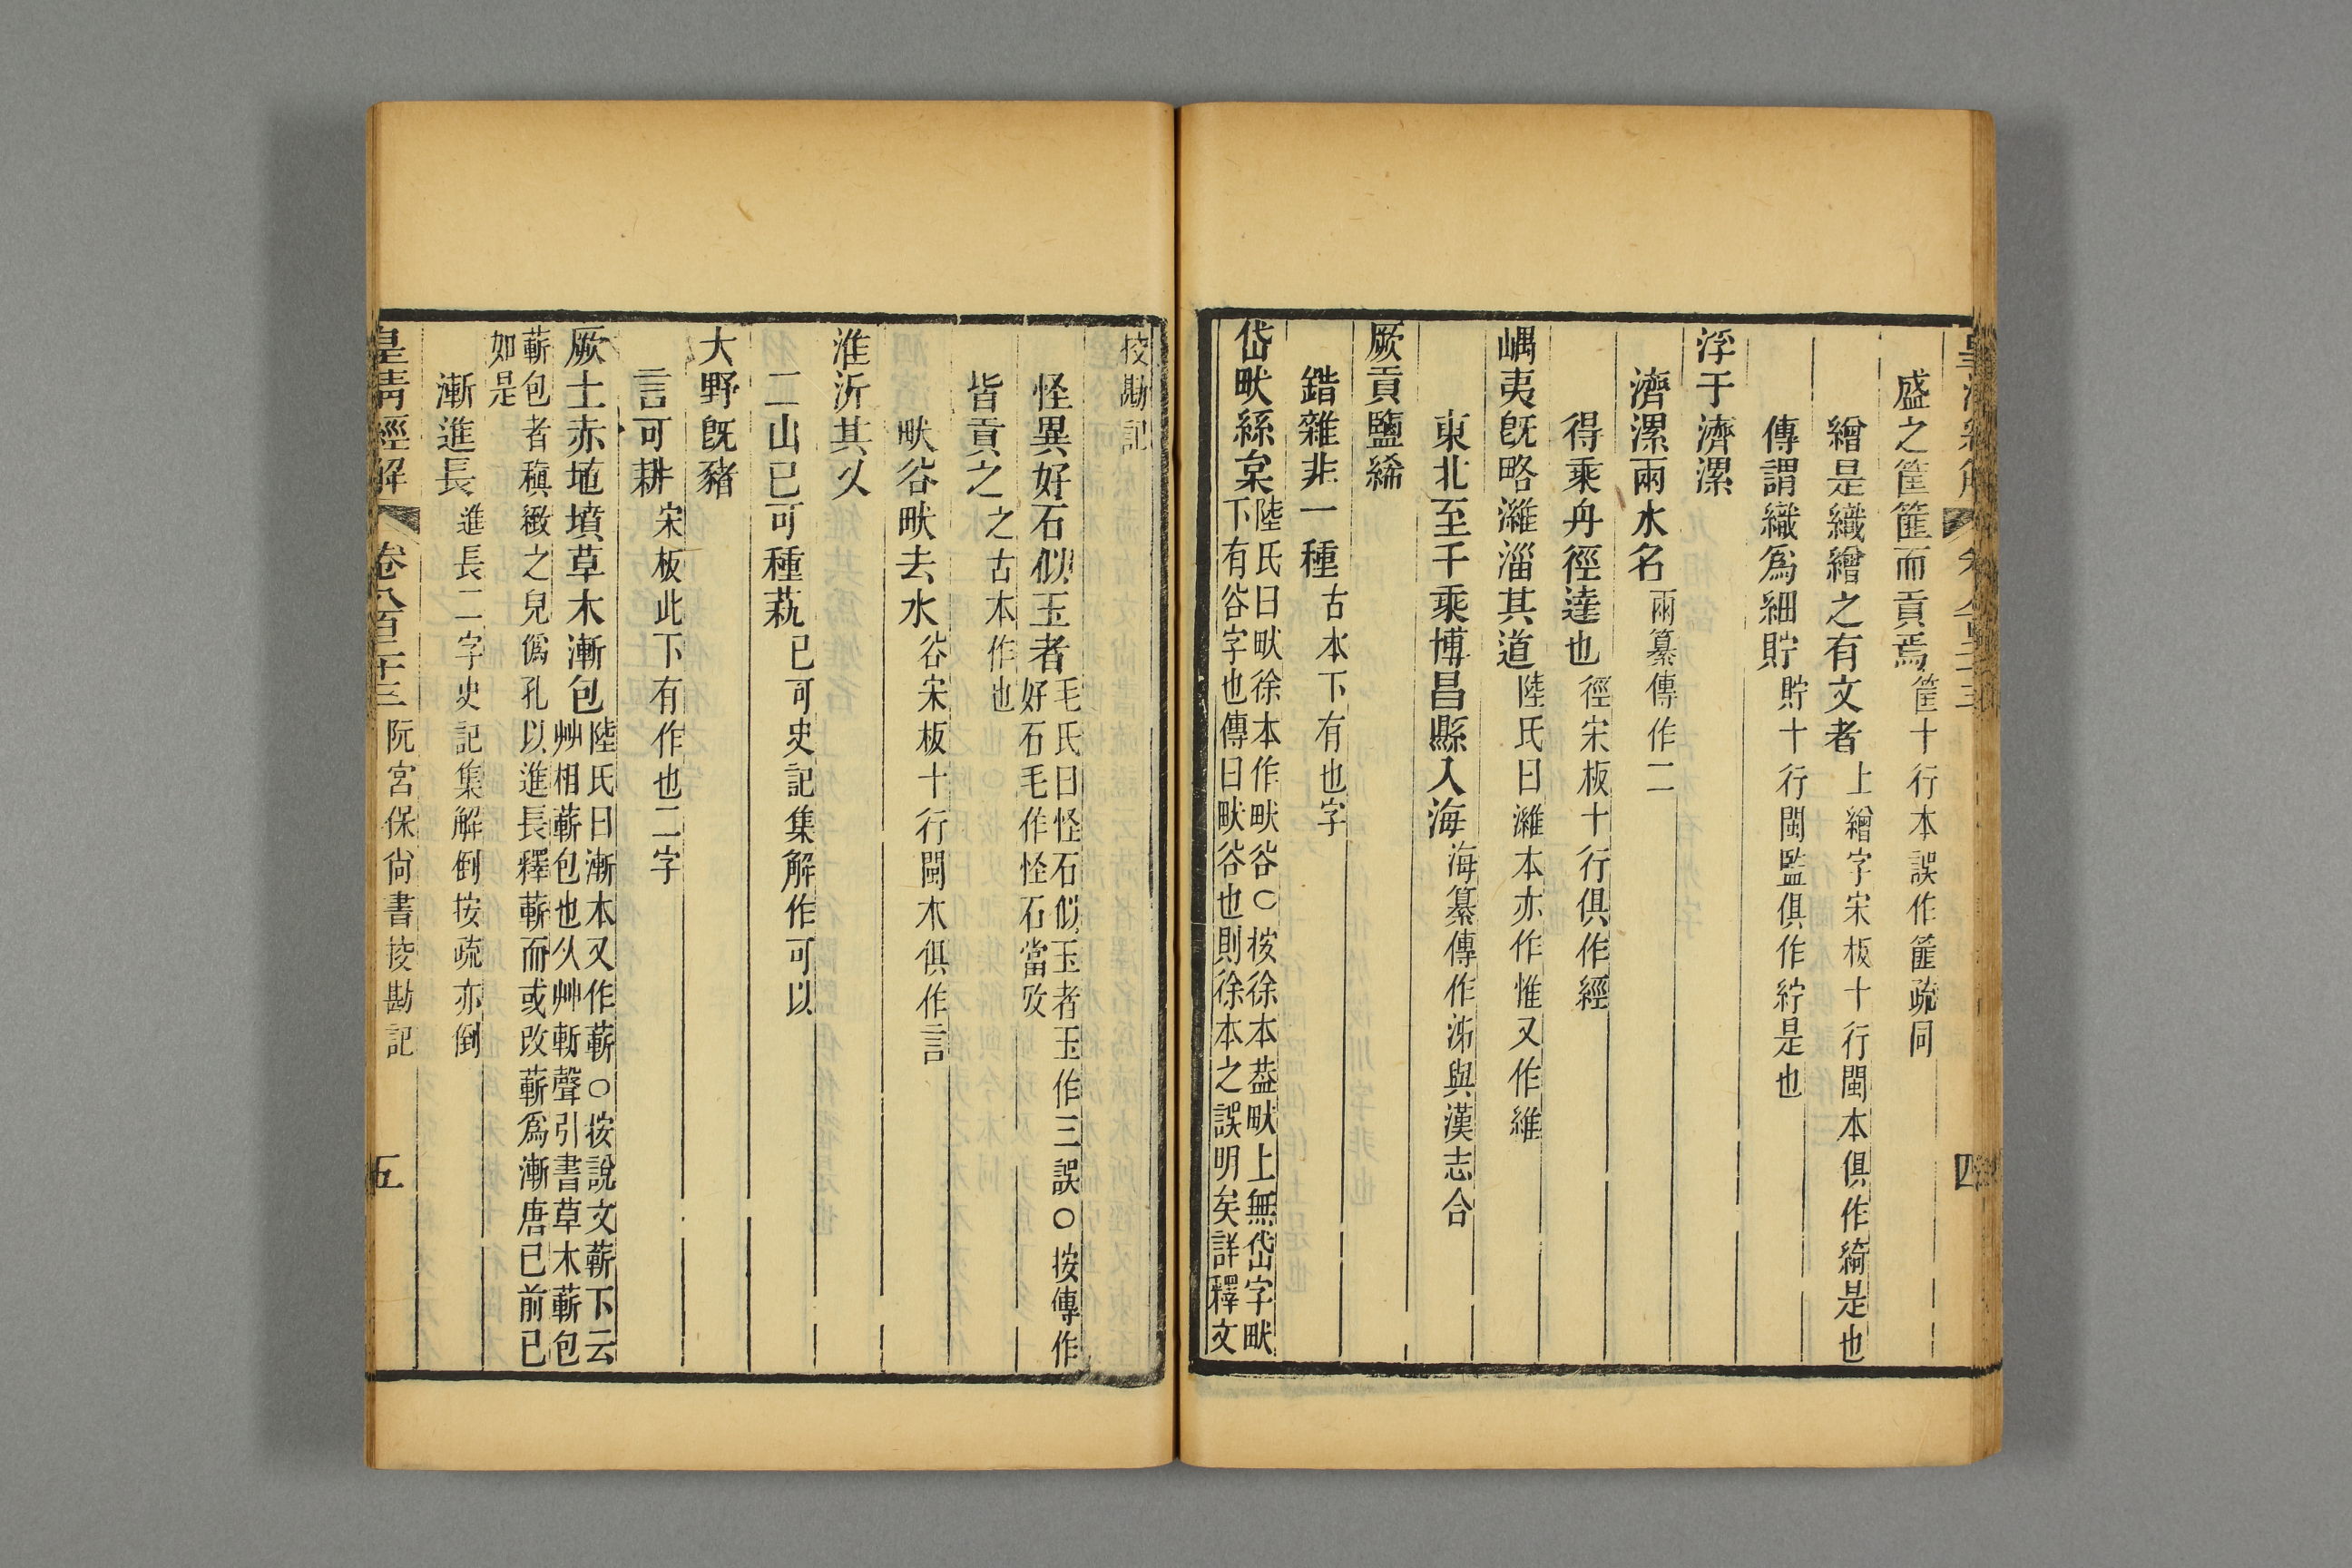 盛之筐篚而貢焉筐十行本誤作篚疏同
繒是織繒之有文者上繒字宋板十行閩本俱作綺是也
傳謂織爲細貯貯十行閩監俱作紵是也
浮于濟漯
濟漯兩水名兩纂傳作二
得乘舟徑達也徑宋板十行俱作經
嵎夷旣略濰淄其道陸氏曰濰本亦作惟又作維
東北至千乘博昌縣入海海纂傳作泲與漢志合
厥貢鹽絺
錯雜非一種古本下有也字
岱畎絲枲陸氏曰畎徐本作畎谷○按徐本葢畎上無岱字畎
下有谷字也傳曰畎谷也則徐本之誤明矣詳釋文
四
挍勘記
怪異好石似玉者毛氏曰怪石似玉者玉作三誤○按傳作
好石毛作怪石當攷
皆貢之之古本作也
畎谷畎去水谷宋板十行閩本俱作言
淮沂其乂
二山已可種蓺已可史記集解作可以
大野旣豬
言可耕宋板此下有作也二字
厥土赤埴墳草木漸包陸氏曰漸本又作蔪○按說文蔪下云
艸相蔪包也从艸斬聲引書草木蔪包
蔪包者稹緻之皃僞孔以進長釋蔪而或改蔪爲漸唐已前已
如是
漸進長進長二字史記集解倒按疏亦倒
皇清經解 卷八百二十三 阮宮保尙書挍勘記 五